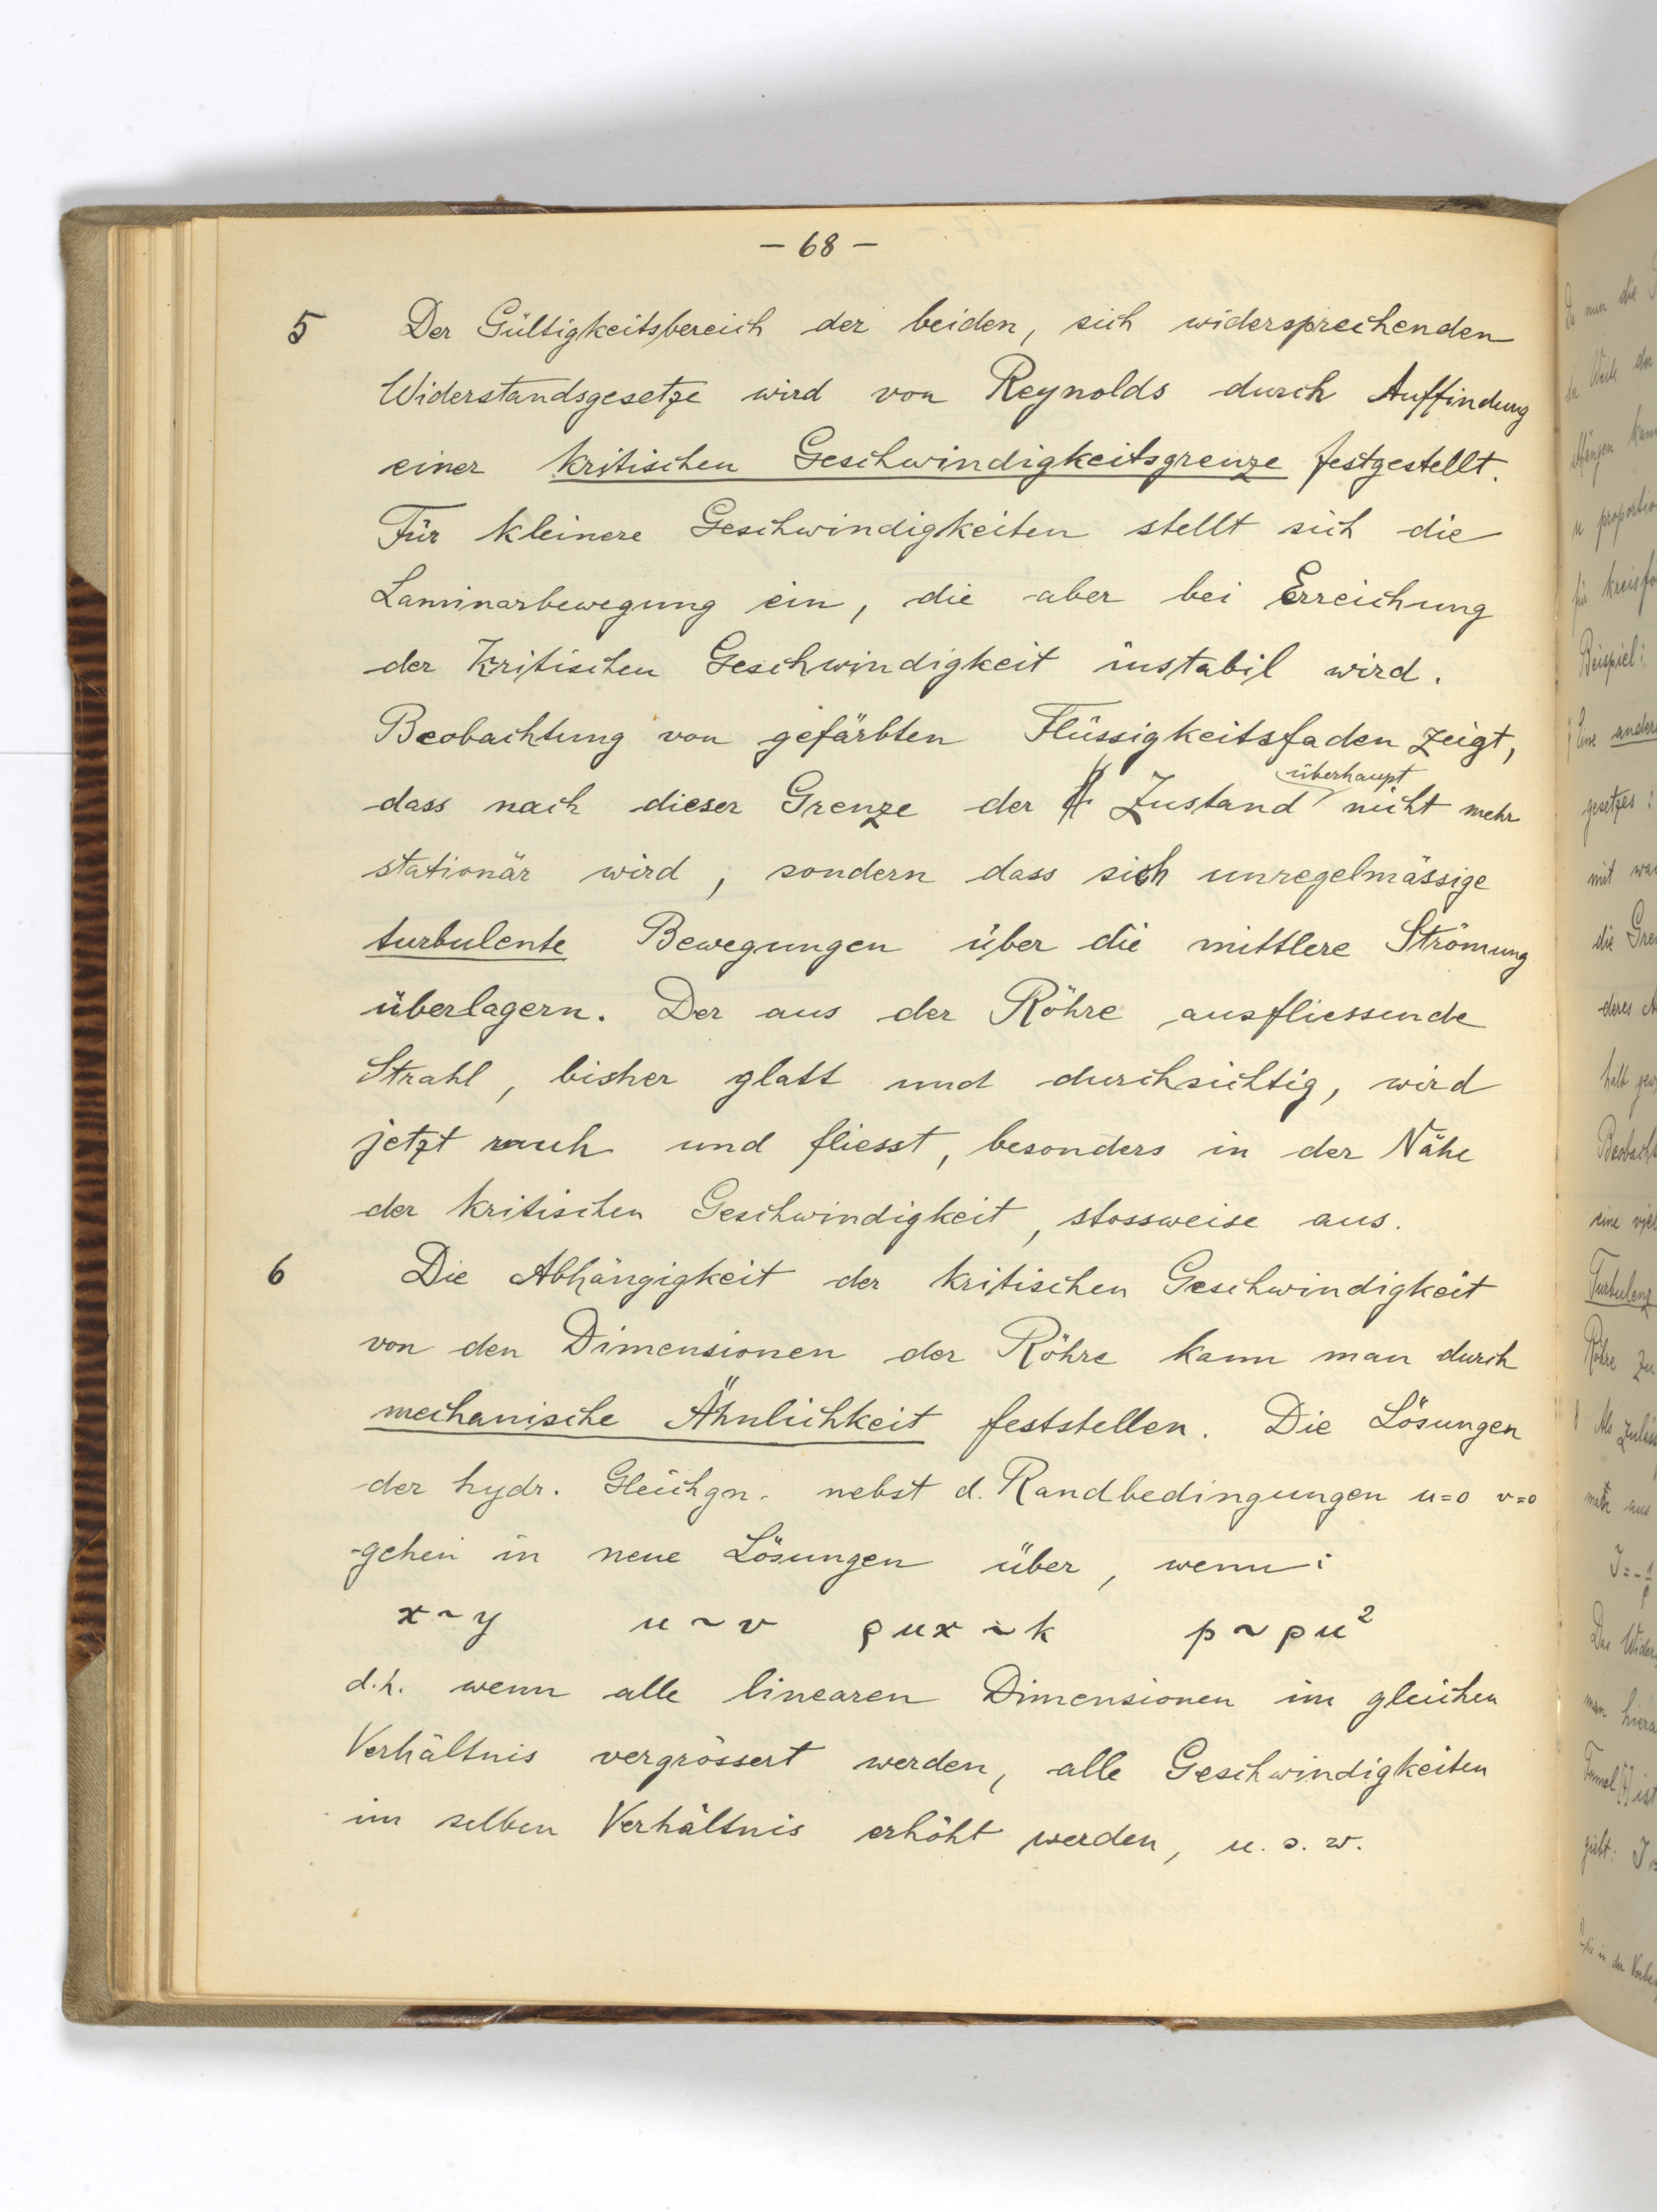 – 68 –
5 Der Gültigkeitsbereich der beiden, sich widersprechenden
Widerstandsgesetze wird von Reynolds durch Auffindung
einer kritischen Geschwindigkeitsgrenze festgestellt.
Für kleinere Geschwindigkeiten stellt sich die
Laminarbewegung ein, die aber bei Erreichung
der kritischen Geschwindigkeit instabil wird.
Beobachtung von gefärbten Flüssigkeitsfaden zeigt,
dass nach dieser Grenze der Zustand überhaupt nicht mehr
stationär wird, sondern dass sich unregelmässige
turbulente Bewegungen über die mittlere Strömung
überlagern. Der aus der Röhre ausfliessende
Strahl, bisher glatt und durchsichtig, wird
jetzt rauh und fliesst, besonders in der Nähe
der kritischen Geschwindigkeit, stossweise aus.
6 Die Abhängigkeit der kritischen Geschwindigkeit
von den Dimensionen der Röhre kann man durch
mechanische Ähnlichkeit feststellen. Die Lösungen
der hydr. Gleichgn. nebst d. Randbedingungen u=0 v=0
gehen in neue Lösungen über, wenn:
x ~ y u ~ v ρux ~ k p ~ ρu²
d.h. wenn alle linearen Dimensionen im gleichen
Verhältnis vergrössert werden, alle Geschwindigkeiten
im selben Verhältnis erhöht werden, u.s.w.
nun die
Weite der
kann
u proportio
für kreisfö
Beispiel:
Eine andere
gesetzes:
mit wa
die Gre
deres
Beobacht
eine viel
Turbulenz
Röhre zu
Als zuläs
aus
J = - 1/ρ
Das Wider
man hiera
ist
giebt: J =
in der Vorbe